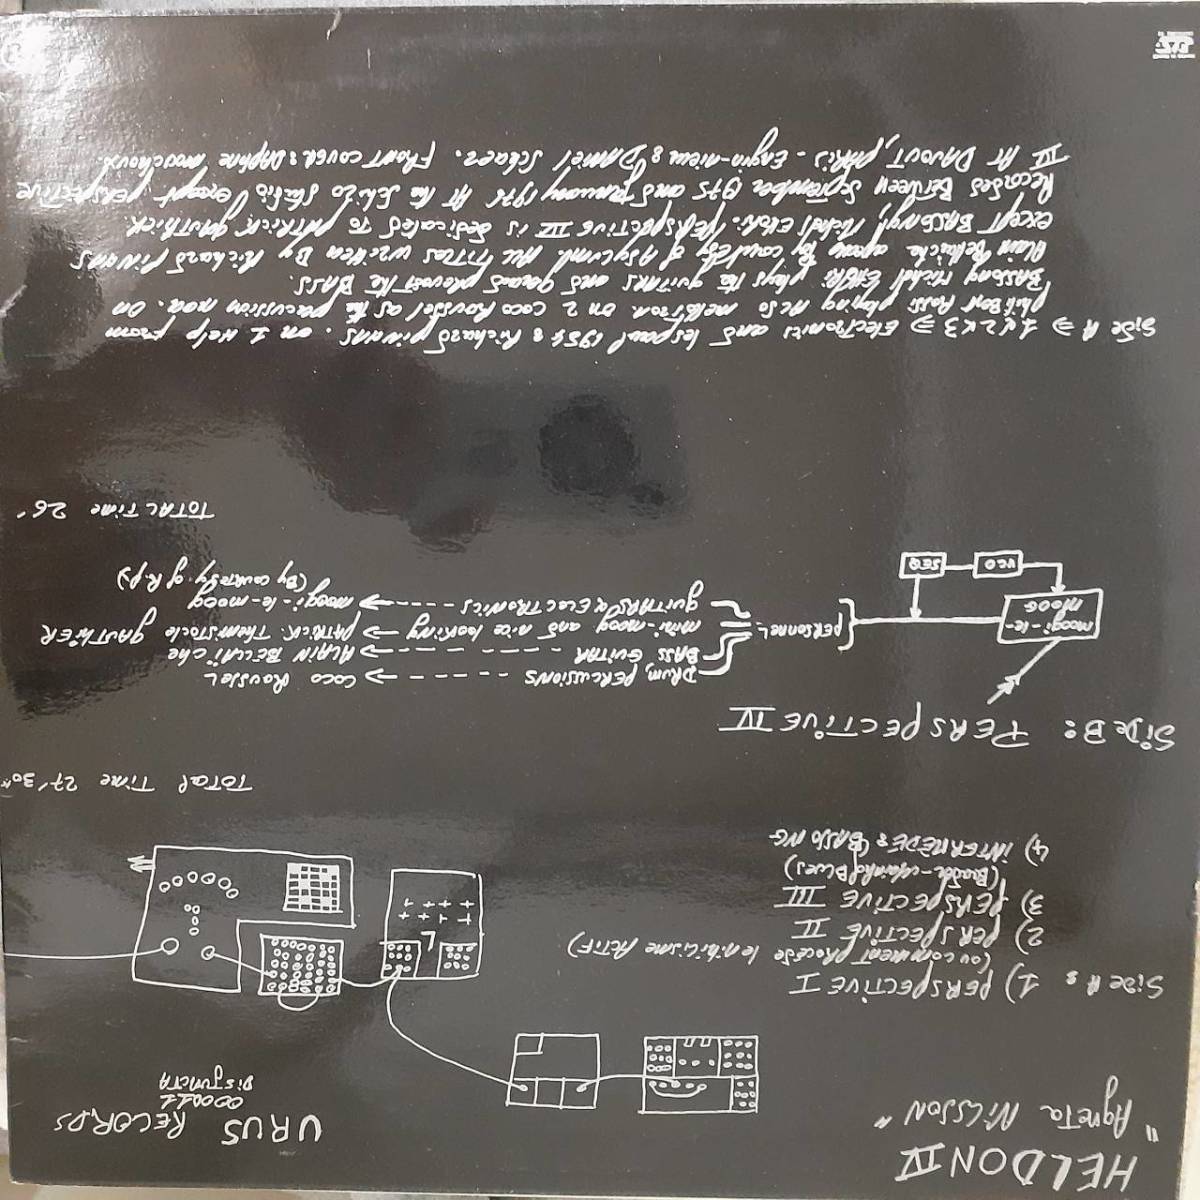 HELDON IV
"Agneta Nilsson"
URUS RECORDS
000011
DISJUNCTA
Side A: 1) PERSPECTIVE I
(ou comment procède le nihilisme ACTIF)
2) PERSPECTIVE II
3) PERSPECTIVE III
4) INTERMÈDE: BASSONG
TOTAL Time 27'30"
Side B: PERSPECTIVE IV
moogi-le-
MOOG
VCO
SEQ
PERSONNEL
DRUM, PERCUSSIONS -----> COCO ROUSSEL
BASS GUITAR -------> ALAIN BELLAÏCHE
mini-moog and nice looking -> PATRICK THEMISTOCLE GAUTHIER
GUITARS & ELECTRONICS ----> moogi-le-moog
(By courtesy of R.P)
TOTAL Time 26'
Side A => 1 & 2 & 3 => Electronics and lespaul 1954: Richard pinhas. on 1 Help from
playing Also mellotron. on 2 COCO Roussel as the percussion man. On
BASSONG Michel Ettori plays the guitars and Gerard prevost the BASS.
Alain Bellaiche again By courtesy of Asylum. All TITLES WRITTEN By Richard Pinhas
except BASSONG, Michel Ettori. PERSPECTIVE IV is dedicated TO PATRICK GAUTHIER.
Recorded Between September 1975 and January 1976 At the Schizo studio except PERSPECTIVE
IV At DAVOUT, PARIS - Engineer: Daniel FRONT COVER: DAPHNE MOUCHOUX.